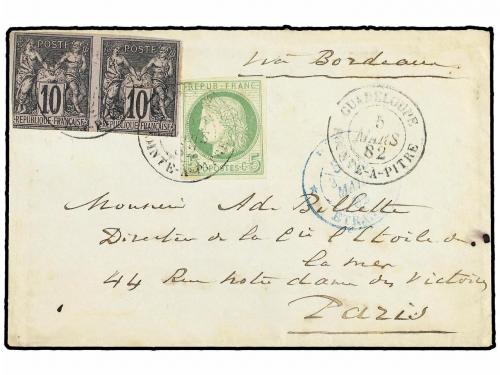 POSTE POSTE
10 10
REPUBLIQUE FRANÇAISE REPUBLIQUE FRANÇAISE
REPUB. FRANC
5 POSTES 5
via Bordeaux
GUADELOUPE
5
MARS
82
POINTE-A-PITRE
ETRAN
Monsieur Ad. Billette
Directeur de la Cie l'Etoile de
la mer
44 Rue notre dame des Victoires
Paris